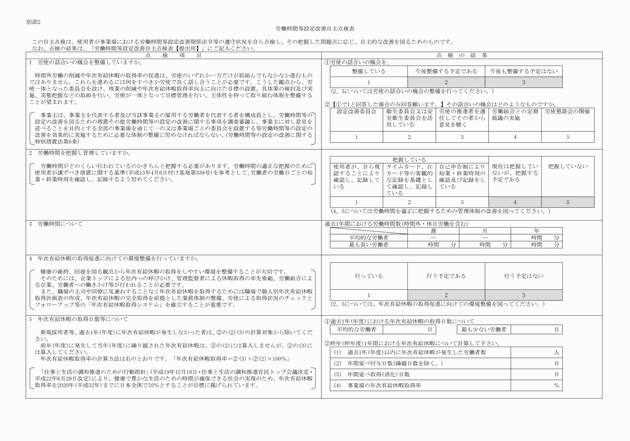 別添2
労働時間等設定改善自主点検表
この自主点検は、使用者が事業場における労働時間等設定改善関係法令等の遵守状況を自ら点検し、その把握した問題点に応じ、自主的な改善を図るためのものです。
なお、点検の結果は、「労働時間等設定改善自主点検表【提出用】」にご記入ください。
点　検　項　目
点　検　の　結　果
1　労使の話い合いの機会を整備していますか。
時間外労働の削減や年次有給休暇の取得率の促進は、労使のいずれか一方だけが取組んでもなかなか進むもの
ではありません。これらを進めるには何をすべきか労使で良く話し合うことが必要です。こうした観点から、労
使一体となった委員会を設け、残業の削減や年次有給休暇取得率向上に向けた目標の設置、具体策の検討及び実
施、実施把握などの取組を行い、労使が一体となって目標管理を行い、主体性を持って取り組む体制を整備するこ
とが望まれます。
事業主は、事業主を代表する者及び当該事業主の雇用する労働者を代表する者を構成員とし、労働時間等の
設定の改善を図るための措置その他労働時間等の設定の改善に関する事項を調査審議し、事業主に対し意見を
述べることを目的とする全部の事業場を通じて一の又は事業場ごとの委員会を設置する等労働時間等の設定の
改善を効果的に実施するために必要な体制の整備に努めなければならない。（労働時間等の設定の改善に関する
特別措置法第6条）
①労使の話合いの機会を、
整備している
今後整備する予定である
今後も整備する予定はない
1
2
3
（2、3については労使の話合いの機会の整備を行ってください。）
②【①で1と回答した場合のみ回答願います。】その話合いの機会はどのようなものですか。
設定改善委員会
衛生委員会又は安全衛生委員会を活用している
労使の推進者を選任してその者から意見を聴く
労働組合との定期協議の実施
労使懇談会の開催
1
2
3
4
5
2　労働時間を把握し管理していますか。
労働時間がどのくらい行われているのかきちんと把握する必要があります。労働時間の適正な把握のために
使用者が講ずべき措置に関する基準（平成13年4月6日付け基発第339号）を参考として、労働者の労働日ごとの始
業・終業時刻を確認し、記録するよう努めてください。
把握している
使用者が、自ら現認することにより確認し、記録している
タイムカード、ICカード等の客観的な記録を基礎として確認し、記録している
自己申告制により始業・終業時刻の確認及び記録をしている
現在は把握していないが、把握する予定である
把握していない
1
2
3
4
5
（4、5については労働時間を適正に把握するための管理体制の改善を図ってください。）
3　労働時間について
過去1年間における労働時間数（時間外・休日労働を含む）
週
月
年
平均的な労働者
—
—
時間　分
最も長い労働者
時間　分
時間　分
時間　分
4　年次有給休暇の取得促進に向けての環境整備を行っていますか。
健康の維持、回復を図る観点から年次有給休暇の取得をしやすい環境を整備することが大切です。
そのためには、企業トップによる社内への呼びかけ、管理監督者による休暇取得の率先垂範、労働組合によ
る企業、労働者への働きかけ等が行われることが必要です。
また、職場の上司や同僚に気兼ねすることなく年次有給休暇を取得するためには職場で個人別年次有給休暇
取得計画表の作成、年次有給休暇の完全取得を前提とした業務体制の整備、労使による取得状況のチェックと
フォローアップ等の「年次有給休暇取得システム」を確立することが重要です。
行っている
行う予定である
行う予定はない
1
2
3
（2、3については、年次有給休暇の取得促進に向けての環境整備を図ってください。）
5　年次有給休暇の取得日数等について
新規採用者等、過去1年（年度）に年次有給休暇が発生しなかった者は、②の(2)(3)の計算対象から除いてくだ
さい。
前年（年度）に発生して当年（年度）に繰り越された年次有給休暇は、②の(2)には算入しませんが、②の(3)に
は算入してください。
年次有給休暇取得率の計算方法は右のとおりです。「年次有給休暇取得率＝②(3)÷②(2)×100％」
「仕事と生活の調和推進のための行動指針」（平成19年12月18日・仕事と生活の調和推進官民トップ会議決定・
平成22年6月29日改定）により、健康で豊かな生活のための時間が確保できる社会の実現のため、年次有給休暇
取得率を2020年（平成32年）までに日本全体で70％とすることが目標に掲げられています。
①過去1年（年度）における年次有給休暇の取得日数について
平均的な労働者
日
最も少ない労働者
日
②昨年（昨年度）1年間における年次有給休暇について計算して下さい。
(1)　過去1年（年度）以内に年次有給休暇が発生した労働者数
人
(2)　年間延べ付与日数（繰越日数を除く。）
日
(3)　年間延べ取得（消化）日数
日
(4)　事業場の年次有給休暇取得率
％